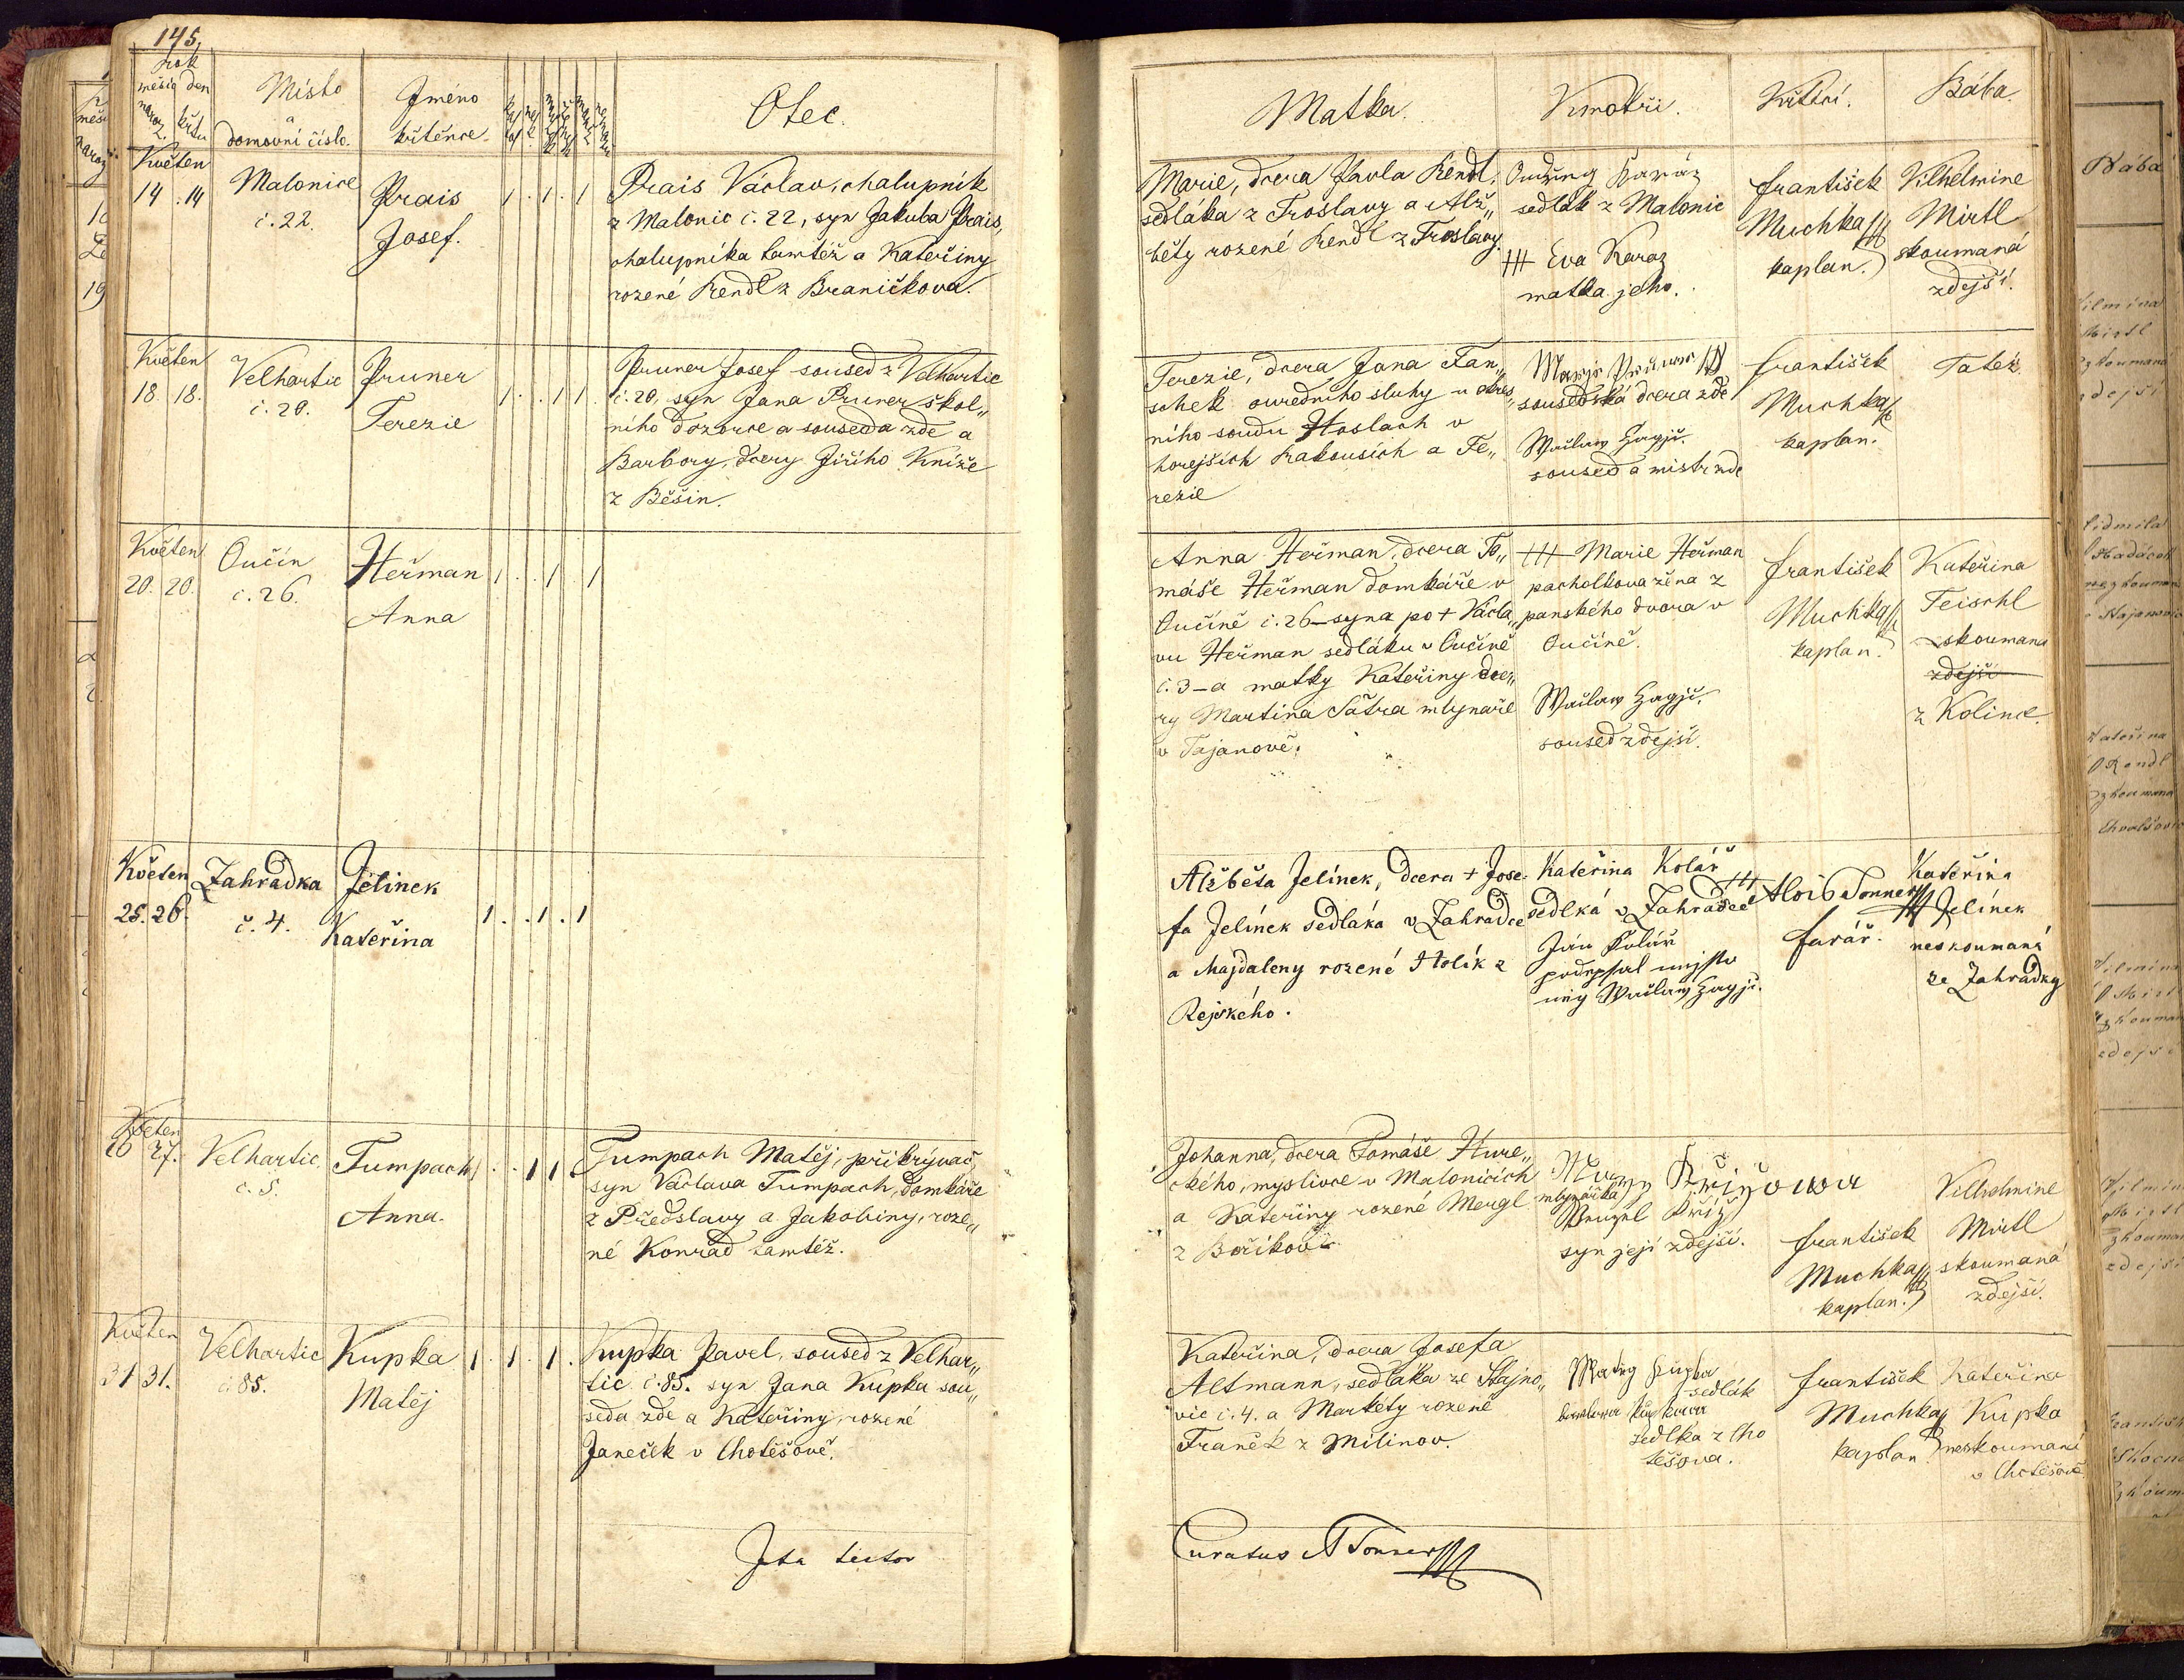 145,
Rok
měsíc den
naroz. křtu
Místo
a
domovní číslo.
Jméno
křtěnce.
Otec.
Matka.
Kmotři.
Křtící.
Bába.
Květen
14. 14
Malonice
č. 22.
Prais
Josef.
1 . 1 . 1
Prais Václav, chalupník
z Malonic č. 22, syn Jakuba Prais,
chalupníka tamtéž a Kateřiny
rozené Rendl z Braníčkova.
Marie, dcera Pavla Rendl,
sedláka z Trošlavy a Alž„
běty rozené Rendl z Troslavy.
Ondřeg Karáz
sedlák z Malonic
+++ Eva Karaz
matka jeho.
František
Muchka
kaplan.
Vilhelmine
Mirtl
skoumaná
zdejší.
Květen
18. 18.
Velhartic
č. 20.
Pruner
Terezie
1 . . 1 1 .
Pruner Josef soused z Velhartic
č. 20, syn Jana Pruner škol„
ního dozorce a souseda zde a
Barbory, dcery Jiřího Kníže
z Běšin.
Terezie, dcera Jana Fan„
schek ouředního sluhy u okres„
ního soudu Haslach v
horejších Rakousích a Te„
rezie
sousedská dcera zde
Wácław Hagjč.
soused a mistr zde
František
Muchka
kaplan.
Tatéž.
Květen
20. 20.
Oučín
č. 26.
Heřman
Anna
1 . . 1 . 1
Anna Heřman, dcera To„
máše Heřman domkáře v
Oučíně č. 26 – syna po + Václa„
vu Heřman sedláku v Oučíně
č. 3 – a matky Kateřiny dce„
ry Martina Šatra mlynaře
v Tajanově.
+++ Marie Heřman
pacholkova žena z
panského dvora v
Oučíně.
Wácław Hagjč.
soused zdejší.
František
Muchka
kaplan.
Kateřina
Teischl
skoumana
zdejší
z Kolince.
Květen
25. 26.
Zahradka
č. 4.
Jelínek
Kateřina
1 . . 1 . 1
Alžběta Jelínek, dcera + Jose-
fa Jelínek sedláka v Zahradce
a Majdaleny rozené Holík z
Rejského.
Kateřina Kolář +++
sedlká v Zahradce
Ján Kolář
podepsal mjsto
nig Wácław Hagjč.
Alois Tonner
farář.
Kateřina
Jelínek
neskoumaná
ze Zahradky
Květen
26 27.
Velhartic
č. 5.
Tumpach
Anna.
1 . . 1 1 .
Tumpach Matěj, přikrývač,
syn Václava Tumpach, domkáře
z Předslavy a Jakobiny, roze„
né Konrad tamtéž.
Johanna, dcera Tomáše Hure„
ckého, myslivce v Malonicích
a Kateřiny rozené Mergl
z Boříkov
Křižowa
mlynářka
Wenzel Křiž
syn její zdejší.
František
Muchka
kaplan.
Vilhelmine
Mirtl
skoumaná
zdejší.
Květen
31 31.
Velhartic
č. 85.
Kupka
Matěj
1 . 1 . 1 .
Kupka Pavel, soused z Velhar„
tic č. 85. syn Jana Kupka sou„
seda zde a Kateřiny, rozené
Janeček v Chotěšově.
Kateřina, dcera Josefa
Altmann, sedláka ze Stajno„
vic č. 4. a Markéty rozené
Franěk z Milínov.
Matěg Kupka
sedlák
sedlka z Cho
těšova.
František
Muchka
kaplan
Kateřina
Kupka
neskoumaná
v Chotěšově
Ita testor
Curatus A Tonner